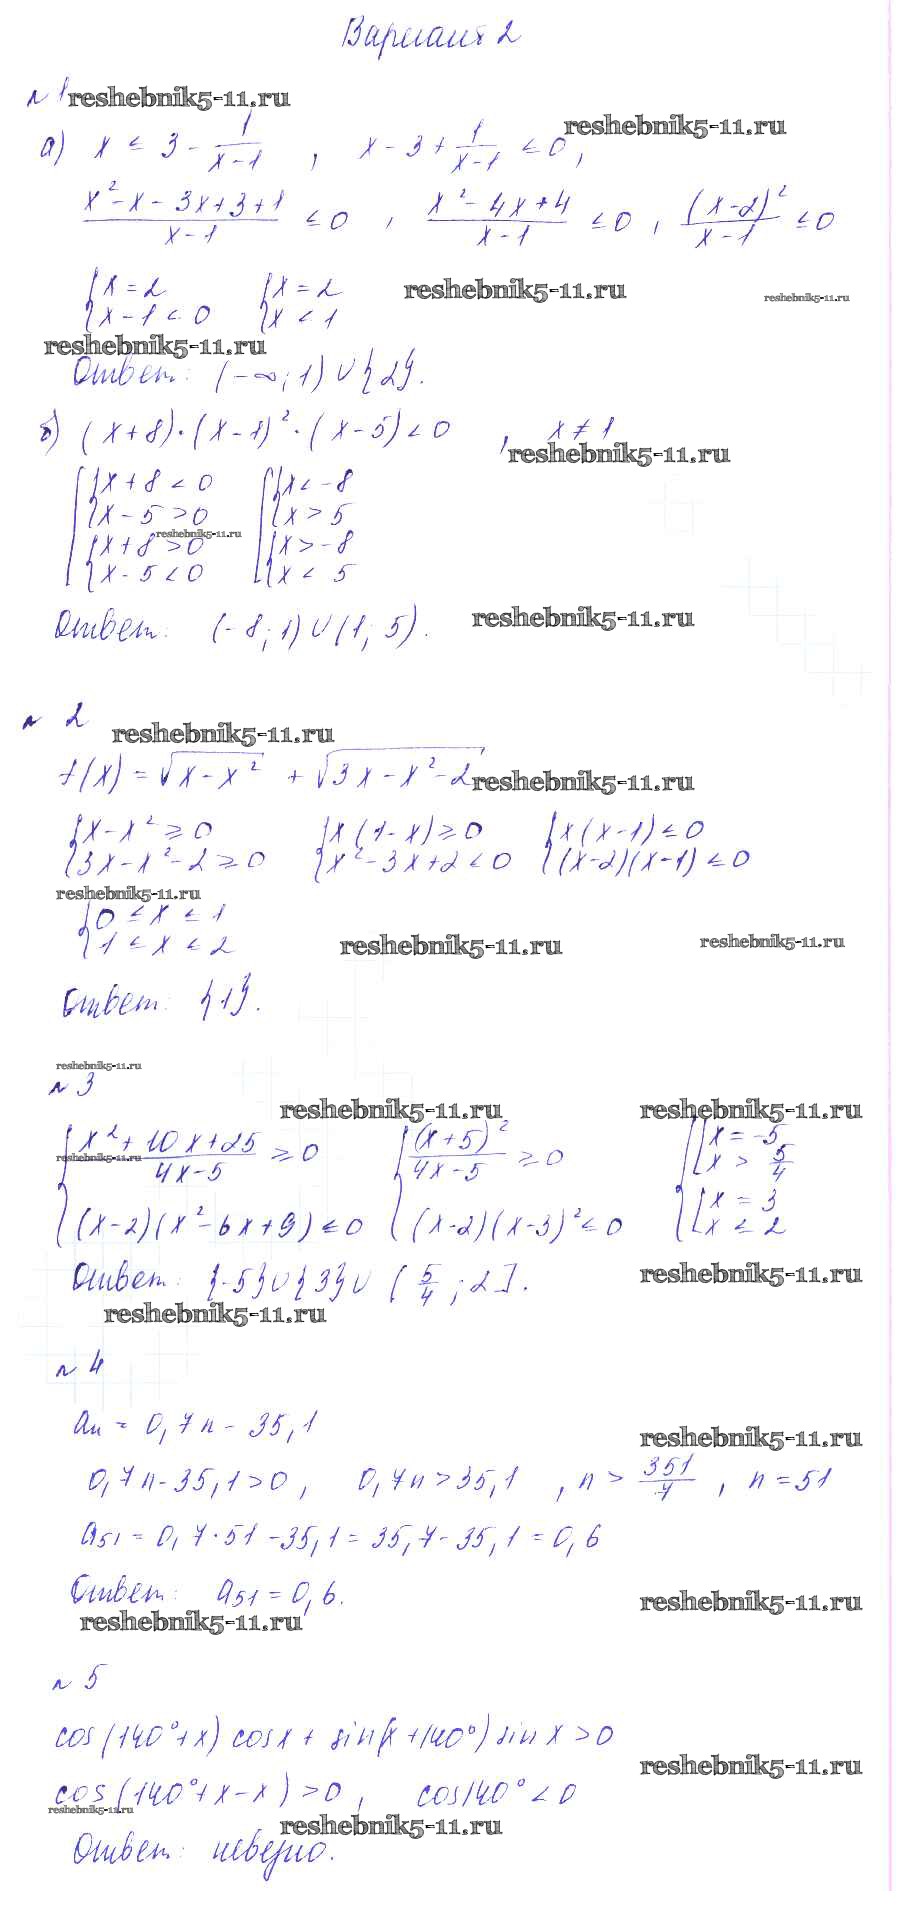 Вариант 2
№ 1 reshebnik5-11.ru
reshebnik5-11.ru
а) x ≤ 3 - 1/(x-1) , x - 3 + 1/(x-1) ≤ 0,
(x² - x - 3x + 3 + 1)/(x-1) ≤ 0 , (x² - 4x + 4)/(x-1) ≤ 0 , (x-2)²/(x-1) ≤ 0
{x = 2 {x = 2 reshebnik5-11.ru reshebnik5-11.ru
{x - 1 < 0 {x < 1
reshebnik5-11.ru
Ответ: (-∞; 1) ∪ {2}.
б) (x+8)·(x-1)²·(x-5) < 0 , x ≠ 1
reshebnik5-11.ru
[{x + 8 < 0 [{x < -8
{x - 5 > 0 {x > 5
reshebnik5-11.ru
{x + 8 > 0 {x > -8
{x - 5 < 0 {x < 5
Ответ: (-8; 1) ∪ (1; 5). reshebnik5-11.ru
№ 2
reshebnik5-11.ru
f(x) = √(x - x²) + √(3x - x² - 2) reshebnik5-11.ru
{x - x² ≥ 0 {x(1-x) ≥ 0 {x(x-1) ≤ 0
{3x - x² - 2 ≥ 0 {x² - 3x + 2 < 0 {(x-2)(x-1) ≤ 0
reshebnik5-11.ru
{0 ≤ x ≤ 1
{1 ≤ x ≤ 2 reshebnik5-11.ru reshebnik5-11.ru
Ответ: {1}.
reshebnik5-11.ru
№ 3
reshebnik5-11.ru reshebnik5-11.ru
{(x² + 10x + 25)/(4x-5) ≥ 0 {(x+5)²/(4x-5) ≥ 0 {[x = -5
reshebnik5-11.ru [x > 5/4
{(x-2)(x² - 6x + 9) ≤ 0 {(x-2)(x-3)² ≤ 0 {[x = 3
[x ≤ 2
Ответ: {-5} ∪ {3} ∪ (5/4; 2]. reshebnik5-11.ru
reshebnik5-11.ru
№ 4
aₙ = 0,7n - 35,1
reshebnik5-11.ru
0,7n - 35,1 > 0, 0,7n > 35,1 , n > 351/7 , n = 51
a₅₁ = 0,7·51 - 35,1 = 35,7 - 35,1 = 0,6
Ответ: a₅₁ = 0,6. reshebnik5-11.ru
reshebnik5-11.ru
№ 5
cos(140°+x) cos x + sin(x+140°) sin x > 0
reshebnik5-11.ru
cos(140° + x - x) > 0 , cos 140° < 0
reshebnik5-11.ru
reshebnik5-11.ru
Ответ: неверно.